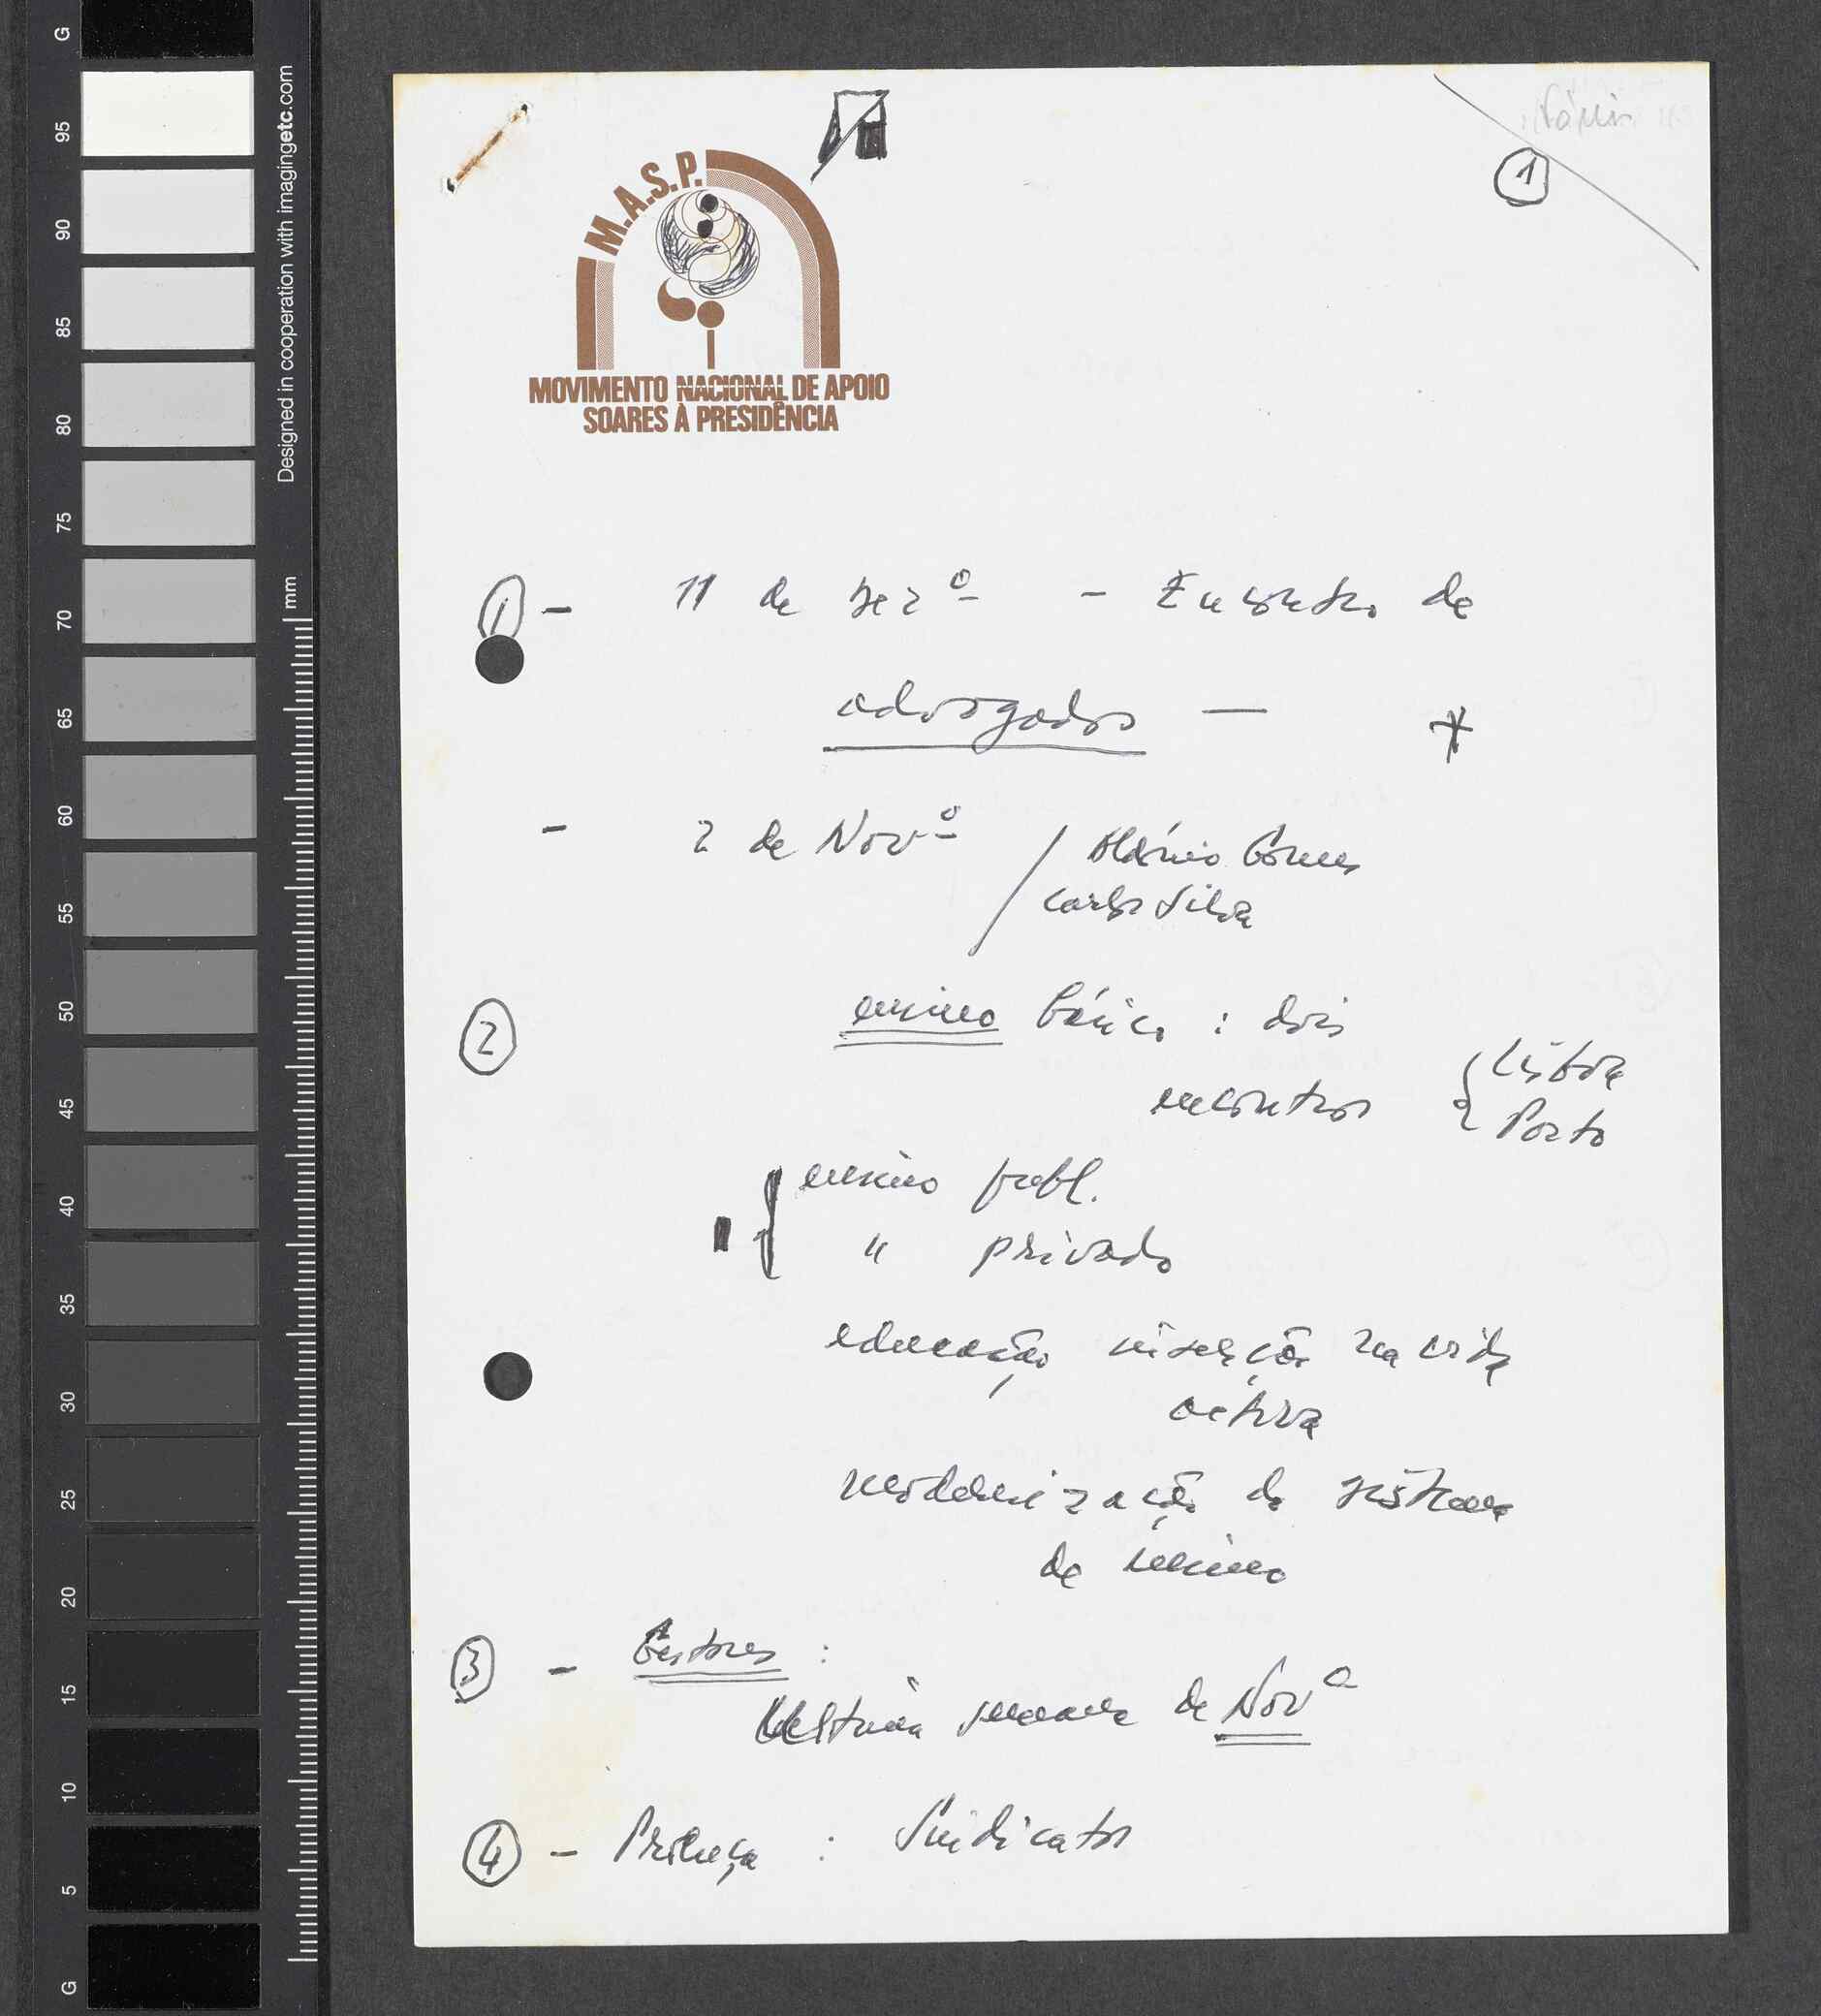 1
M.A.S.P.
MOVIMENTO NACIONAL DE APOIO
SOARES À PRESIDÊNCIA
1 - 11 de Dezº - Encontro de
advogados — *
- 2 de Novº / Mário Gomes
Carlos Silva
2 ensino básico : dois
encontros { Lisboa
Porto
{ ensino publ.
" privado
educação inserção na vida
activa
modernização do sistema
de ensino
3 - Gestores :
última semana de Novº
4 - Presença : Sindicatos
G
95
90
85
80
75
70
65
60
55
50
45
40
35
30
25
20
15
10
5
G
Designed in cooperation with imagingetc.com
mm